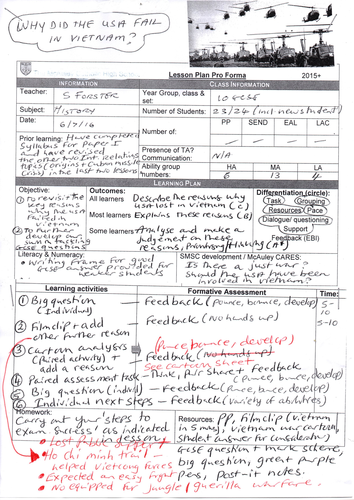 WHY DID THE USA FAIL
IN VIETNAM?
Lesson Plan Pro Forma 2015+
INFORMATION
CLASS INFORMATION
Teacher: S FORSTER
Year Group, class & set: 10 GCSE
Subject: HISTORY
Number of Students: 23/24 (incl new student)
Date: 6/7/16
Number of: PP SEND EAL LAC
Prior learning: Have completed
syllabus for Paper 1
and have revised
the other two
in the last two lessons
Presence of TA?
Communication: N/A
Ability group HA MA LA
numbers: 6 13 4
LEARNING PLAN
Objective:
① To revisit the
key reasons
why the USA
failed in
Vietnam
② To further
develop our
GCSE questions
Outcomes:
All learners Describe the reasons why
USA lost in Vietnam (C)
Most learners Explains these reasons (B)
Some learners Analyse and make a
judgement on these
reasons, Prioritising (A*)
Differentiation (circle):
Task Grouping
Resources Pace
Dialogue/ questioning
Support
Feedback (EBI)
Literacy & Numeracy:
• Writing frame for good
GCSE answer provided for
students
SMSC development / McAuley CARES:
Is there a just war?
Should the USA have been
involved in Vietnam?
Learning activities Formative Assessment Time:
① Big question — Feedback (Pounce, bounce, develop) 5-
(Individual) 10
② Film clip + add — Feedback (No hands up) 5-10
other further reason
③ Cartoon analysis — (Pounce, bounce, develop)
(Paired activity) + Feedback (No hands up)
add a reason See cartoon sheet
④ Paired assessment task - Think, Pair Share + Feedback
(Pounce, bounce, develop)
⑤ Big question (indiv) - Feedback (Pounce, bounce, develop)
⑥ Individual next steps - Feedback (variety of abilities)
Homework:
Carry out your 'steps to
exam success' as indicated
in lesson
• Lost Public support
• Ho Chi Minh trail -
helped Vietcong
• Expected an easy fight
• Not equipped for jungle/guerilla warfare.
Resources: PP, film clip (Vietnam
in 5 mins), Vietnam war cartoon,
student answer (for consideration)
GCSE question + mark scheme,
big question, great purple
pens, post-it notes.